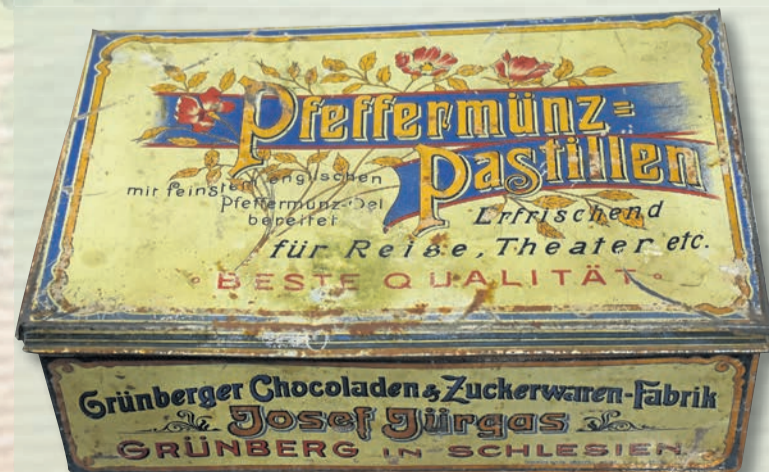 Pfeffermünz=
Pastillen
mit feinsten englischen
Pfeffermünz-Oel
bereitet
Erfrischend
für Reise, Theater etc.
BESTE QUALITÄT
Grünberger Chocoladen & Zuckerwaren-Fabrik
Josef Jürgas
GRÜNBERG IN SCHLESIEN